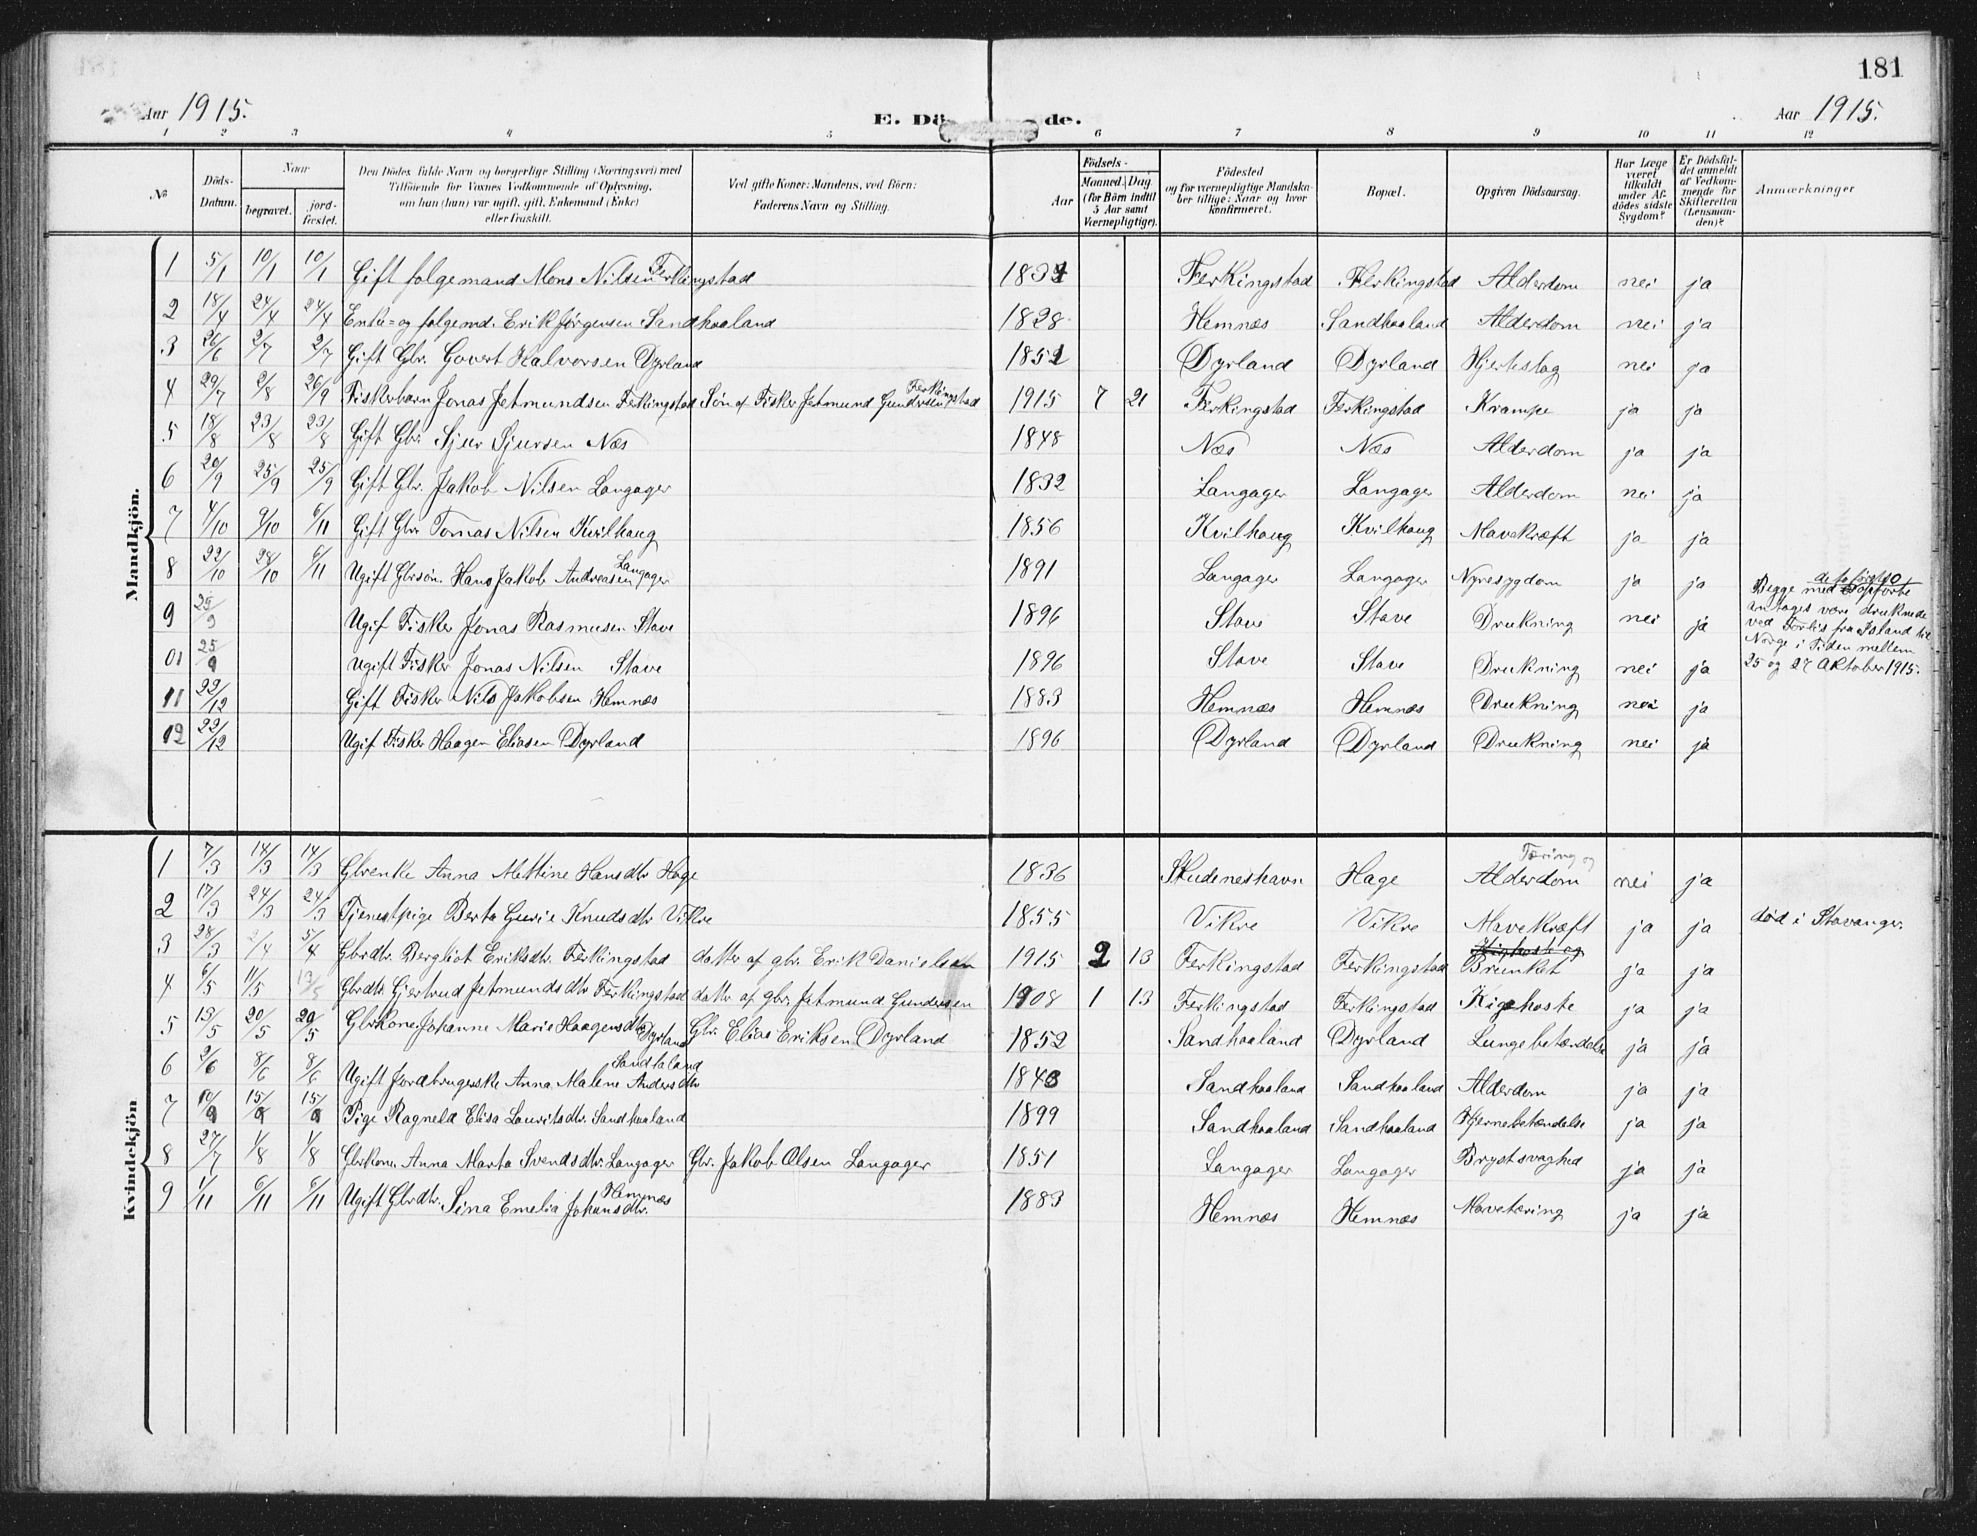 181
Aar 1915. E. Dö de. Aar 1915.
1 2 3 4 5 6 7 8 9 10 11 12
No | Döds-Datum. | Naar begravet. | jordfæstet. | Den Dödes fulde Navn og borgerlige Stilling (Næringsvei) med Tilföiende for Voxnes Vedkommende af Oplysning, om han (hun) var ugift, gift, Enkemand (Enke) eller fraskilt. | Ved gifte Koner: Mandens, ved Börn: Faderens Navn og Stilling. | Födsels- Aar | Maaned. | Dag (for Börn indtil 5 Aar samt Værnepligtige). | Födested og for værnepligtige Mandskaber tillige: Naar og hvor konfirmeret. | Bopæl. | Opgiven Dödsaarsag. | Har Læge været tilkaldt under Afdödes sidste Sygdom? | Er Dödsfaldet anmeldt af Vedkommende for Skifteretten (Lensmanden)? | Anmærkninger
Mandkjön.
1 5/1 10/1 10/1 Gift folgemand Mons Nilsen Ferkingstad 1831 Ferkingstad Ferkingstad Alderdom nei ja
2 18/4 24/4 24/4 Enke= og folgemd. Erik Jørgensen Sandhaaland 1828 Hemnæs Sandhaaland Alderdom nei ja
3 26/6 2/7 2/7 Gift Gbr. Govert Halvorsen Dyrland 1851 Dyrland Dyrland Hjerteslag nei ja
4 29/7 2/8 26/9 Fiskerbarn Jonas Jetmundsen Ferkingstad Søn af Fisker Jetmund Gundersen Ferkingstad 1915 7 21 Ferkingstad Ferkingstad Krampe ja ja
5 18/8 23/8 23/8 Gift Gbr. Sjur Sjursen Næs 1848 Næs Næs Alderdom ja ja
6 20/9 25/9 25/9 Gift Gbr. Jakob Nilsen Langager 1832 Langager Langager Alderdom nei ja
7 4/10 9/10 6/11 Gift Gbr. Tomas Nilsen Kvilhaug 1856 Kvilhaug Kvilhaug Mavekræft ja ja
8 22/10 28/10 6/11 Ugift Gbrsøn. Hans Jakob Andreasen Langager 1891 Langager Langager Nyresygdom ja ja
9 25/9 Ugif Fisker Jonas Rasmusen Stave 1896 Stave Stave Drukning nei ja Begge med opførte
10 25/9 Ugift Fisker Jonas Nilsen Stave 1896 Stave Stave Drukning nei ja antages være druknede ved Forlis fra Island til Norge i Tiden mellem 25 og 27 Oktober 1915.
11 22/12 Gift Fisker Nils Jakobsen Hemnæs 1883 Hemnæs Hemnæs Drukning nei ja
12 22/12 Ugif Fisker Haagen Eliasen Dyrland 1896 Dyrland Dyrland Drukning nei ja
Kvindekjön
1 7/3 14/3 14/3 Gbrenke Anna Mettine Hansdtr Hage 1836 Skudeneshavn Hage Tæring og Alderdom nei ja
2 17/3 24/3 24/3 Tjenestpige Berta Gurie Knudsdtr Vikre 1855 Vikre Vikre Mavekræft ja ja død i Stavanger.
3 28/3 2/4 5/4 Gbrdtr. Bergliot Eriksdtr. Ferkingstad datter af gbr. Erik Danielsen 1915 2 13 Ferkingstad Ferkingstad Kighoste og Brunket ja ja
4 6/5 11/5 13/5 Gbrdtr. Gjertrud Jetmundsdtr Ferkingstad dattr af gbr. Jetmund Gundersen 1908 1 13 Ferkingstad Ferkingstad Kighoste ja ja
5 13/5 20/5 20/5 Gbrkone. Johanne Marie Haagensdtr Dyrland Gbr. Elias Eriksen Dyrland 1852 Sandhaaland Dyrland Lungebetændelse ja ja
6 2/6 8/6 8/6 Ugift Jordbrugerske Anna Malene Andersdtr Sandhaland 1843 Sandhaaland Sandhaaland Alderdom ja ja
7 10/9 15/9 15/9 Pige Ragneld Elisa Lauritsdtr. Sandhaaland 1899 Sandhaaland Sandhaaland Hjernebetændelse ja ja
8 27/7 1/8 1/8 Gbrkone. Anna Marta Svendsdtr. Langager Gbr. Jakob Olsen Langager 1851 Langager Langager Brystsvaghed ja ja
9 1/11 6/11 6/11 Ugift Gbrdtr. Sina Emelia Johansdtr. Hemnæs 1883 Hemnæs Hemnæs Mavetæring ja ja